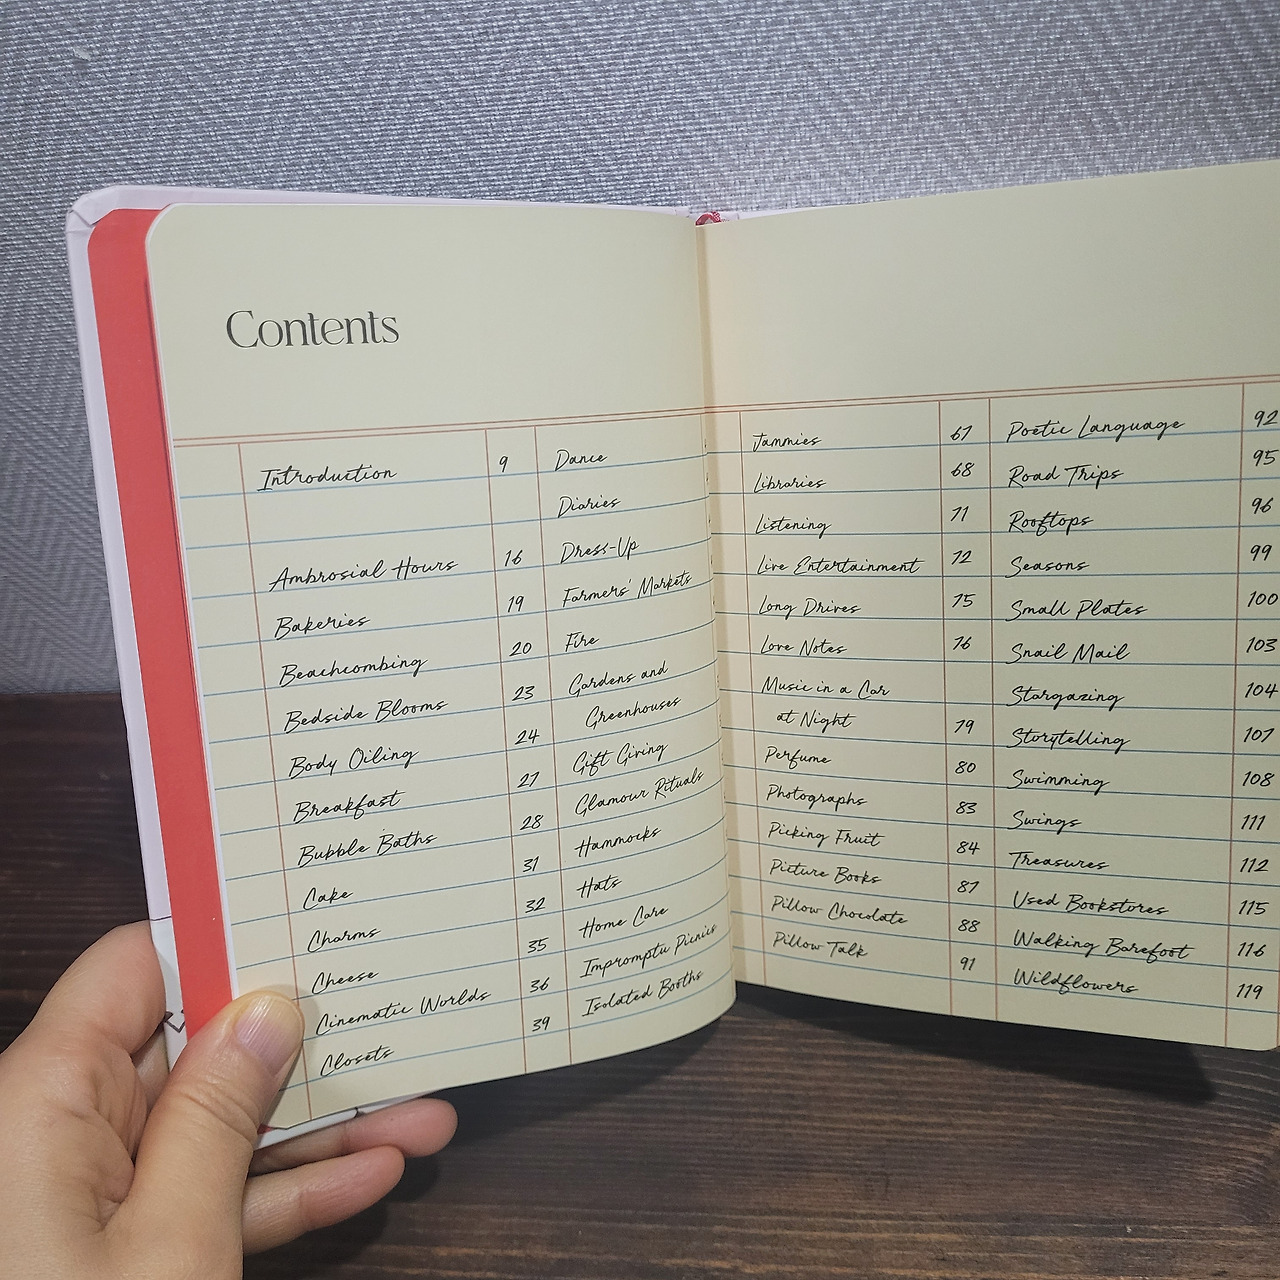 Contents
Introduction 9
Ambrosial Hours 16
Bakeries 19
Beachcombing 20
Bedside Blooms 23
Body Oiling 24
Breakfast 27
Bubble Baths 28
Cake 31
Charms 32
Cheese 35
Cinematic Worlds 36
Closets 39
Dance
Diaries
Dress-Up
Farmers' Markets
Fire
Gardens and
Greenhouses
Gift Giving
Glamour Rituals
Hammocks
Hats
Home Care
Impromptu Picnics
Isolated Booths
Jammies 67
Libraries 68
Listening 71
Live Entertainment 72
Long Drives 75
Love Notes 76
Music in a Car
at Night 79
Perfume 80
Photographs 83
Picking Fruit 84
Picture Books 87
Pillow Chocolate 88
Pillow Talk 91
Poetic Language 92
Road Trips 95
Rooftops 96
Seasons 99
Small Plates 100
Snail Mail 103
Stargazing 104
Storytelling 107
Swimming 108
Swings 111
Treasures 112
Used Bookstores 115
Walking Barefoot 116
Wildflowers 119